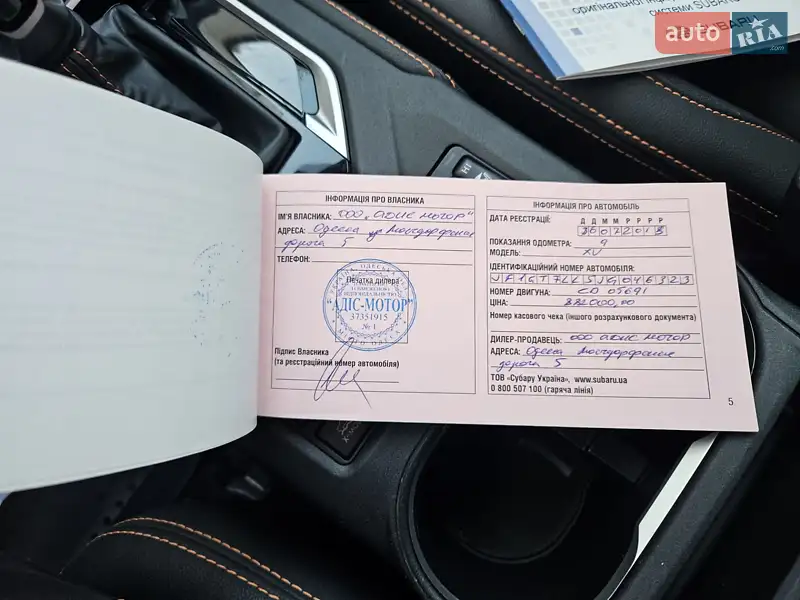 оригінальної
системи SUBARU
SUBARU
auto RIA
.com
ІНФОРМАЦІЯ ПРО ВЛАСНИКА
ІМ'Я ВЛАСНИКА: ООО „АДИС МОТОР"
АДРЕСА: Одесса
дорога 5
ТЕЛЕФОН:
Печатка дилера
"АДІС-МОТОР"
37351915
№ 1
Підпис Власника
(та реєстраційний номер автомобіля)
ІНФОРМАЦІЯ ПРО АВТОМОБІЛЬ
ДАТА РЕЄСТРАЦІЇ: Д Д М М Р Р Р Р
30072018
ПОКАЗАННЯ ОДОМЕТРА: 9
МОДЕЛЬ: XV
ІДЕНТИФІКАЦІЙНИЙ НОМЕР АВТОМОБІЛЯ:
JF1GT7LL5JG046323
НОМЕР ДВИГУНА: CD05691
ЦІНА: 882000,00
Номер касового чека (іншого розрахункового документа)
ДИЛЕР-ПРОДАВЕЦЬ: ООО АДИС МОТОР
АДРЕСА: Одесса
дорога 5
ТОВ «Субару Україна», www.subaru.ua
0 800 507 100 (гаряча лінія)
5